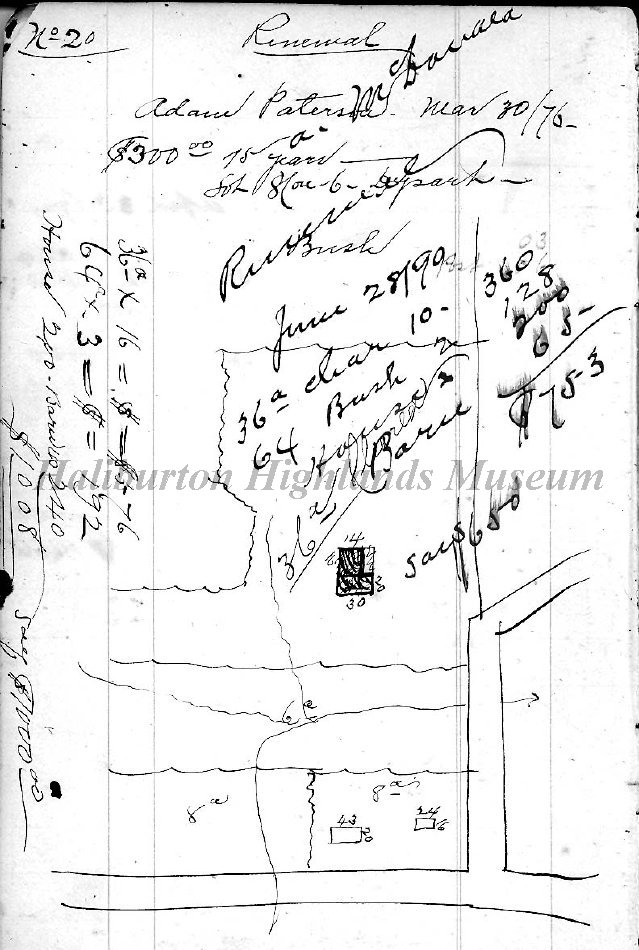 No 20
Renewal
McDonald
Adam Paterson Mar 30/76
$300 00 75 a
years
Lot 8 Con 6
Bush
June 28/90
36 a clear 10 - 360
64 Bush 2 128
House 200
Barn 65 -
$753
say 650
36 a
36 a x 16 = $576
64 x 3 = $192
House 200 - Barn 40
$1008
say $1000 00
Haliburton Highlands Museum
14
30
6 a
8 a
8 a
43
30
24
16